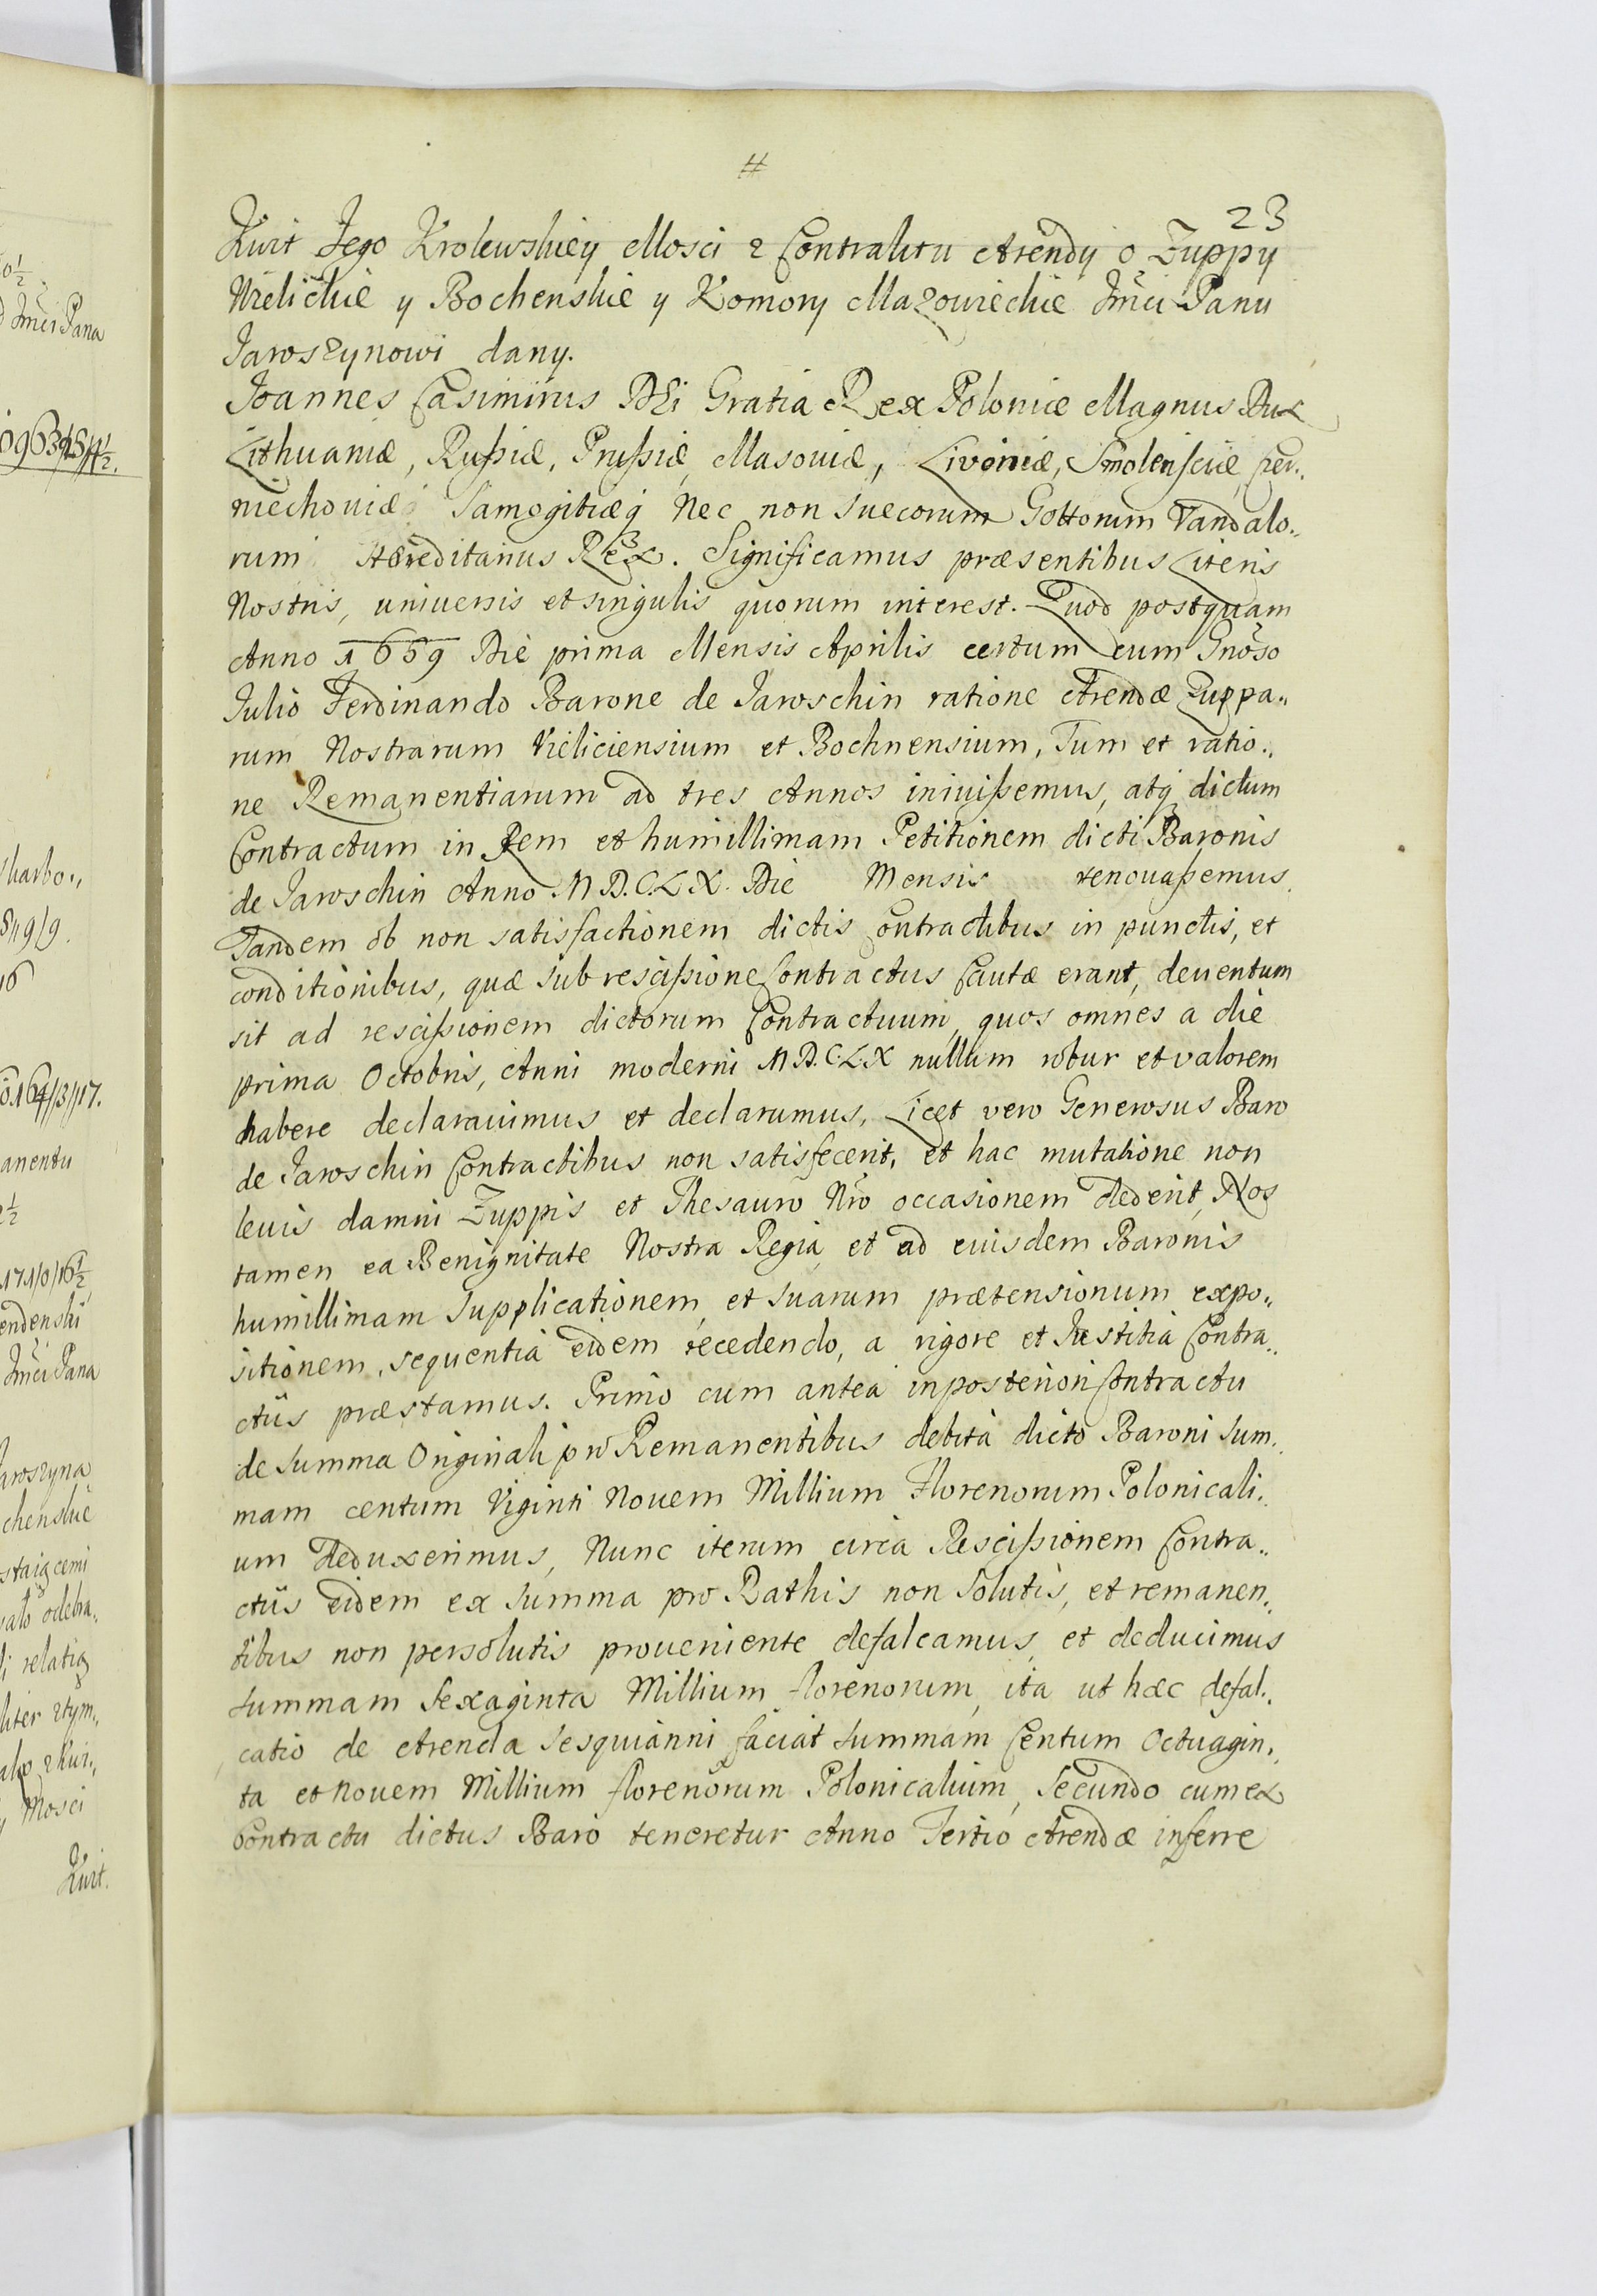 #
23
Kwit Jego Krolewskiey Mosci z Contraktu Arendy o Zuppy
Wielickie y Bochenskie y Komory Mazowieckie Jmći Panu
Jaroszynowi dany.
Joannes Casimirus DEi Gratia Rex Poloniæ Magnus Dux
Lithuaniæ, Rußiæ, Prußiæ, Masouiæ, Livoniæ, Smolensciæ, Czer„
niechouiæ Samogitiæq Nec non Suecorum Gottorum Vandalo„
rum Hæreditarius Rex. Significamus præsentibus Literis
Nostris, uniuersis et singulis quorum interest. Quod postquam
Anno 1659 Die prima Mensis Aprilis certum cum Gnoso
Julio Ferdinando Barone de Jaroschin ratione Arendæ Zuppa„
rum Nostrarum Vieliciensium et Bochnensium, Tum et ratio„
ne Remanentiarum ad tres Annos iniuißemus, atq dictum
Contractum in Rem et humillimam Petitionem dicti Baronis
de Jaroschin Anno M.D.C.L.X. Die Mensis renouaßemus.
Tandem ob non satisfactionem dictis Contractibus in punctis, et
conditionibus, quæ sub rescißione Contractus Cautæ erant, deuentum
sit ad rescißionem dictorum Contractuum, quos omnes a die
prima Octobris, Anni moderni M.D.C.L.X nullum robur et valorem
habere declarauimus et declaramus, Licet vero Generosus Baro
de Jaroschin Contractibus non satisfecerit, et hac mutatione non
leuis damni Zuppis et Thesauro Nro occasionem dederit, Nos
tamen ea Benignitate Nostra Regia, et ad euisdem Baronis
humillimam Supplicationem, et suarum prætensionum expo„
sitionem, sequentia eidem recedendo, a rigore et Justitia Contra„
ctus præstamus. Primo cum antea in posteriori Contractu
de Summa Originali pro Remanentibus debita dicto Baroni Sum„
mam centum Viginti Nouem Millium Florenorum Polonicali„
um deduxerimus, Nunc iterum circa Rescißionem Contra„
ctus eidem ex Summa pro Rathis non Solutis, et remanen„
tibus non persolutis proueniente defalcamus, et deducimus
summam Sexaginta Millium florenorum, ita ut hæc defal„
catio de Arenda Sesquianni faciat Summam Centum Octuagin„
ta et Nouem Millium florenorum Polonicalium, Secundo cum ex
Contractu dictus Baro teneretur Anno Tertio Arendæ inferre